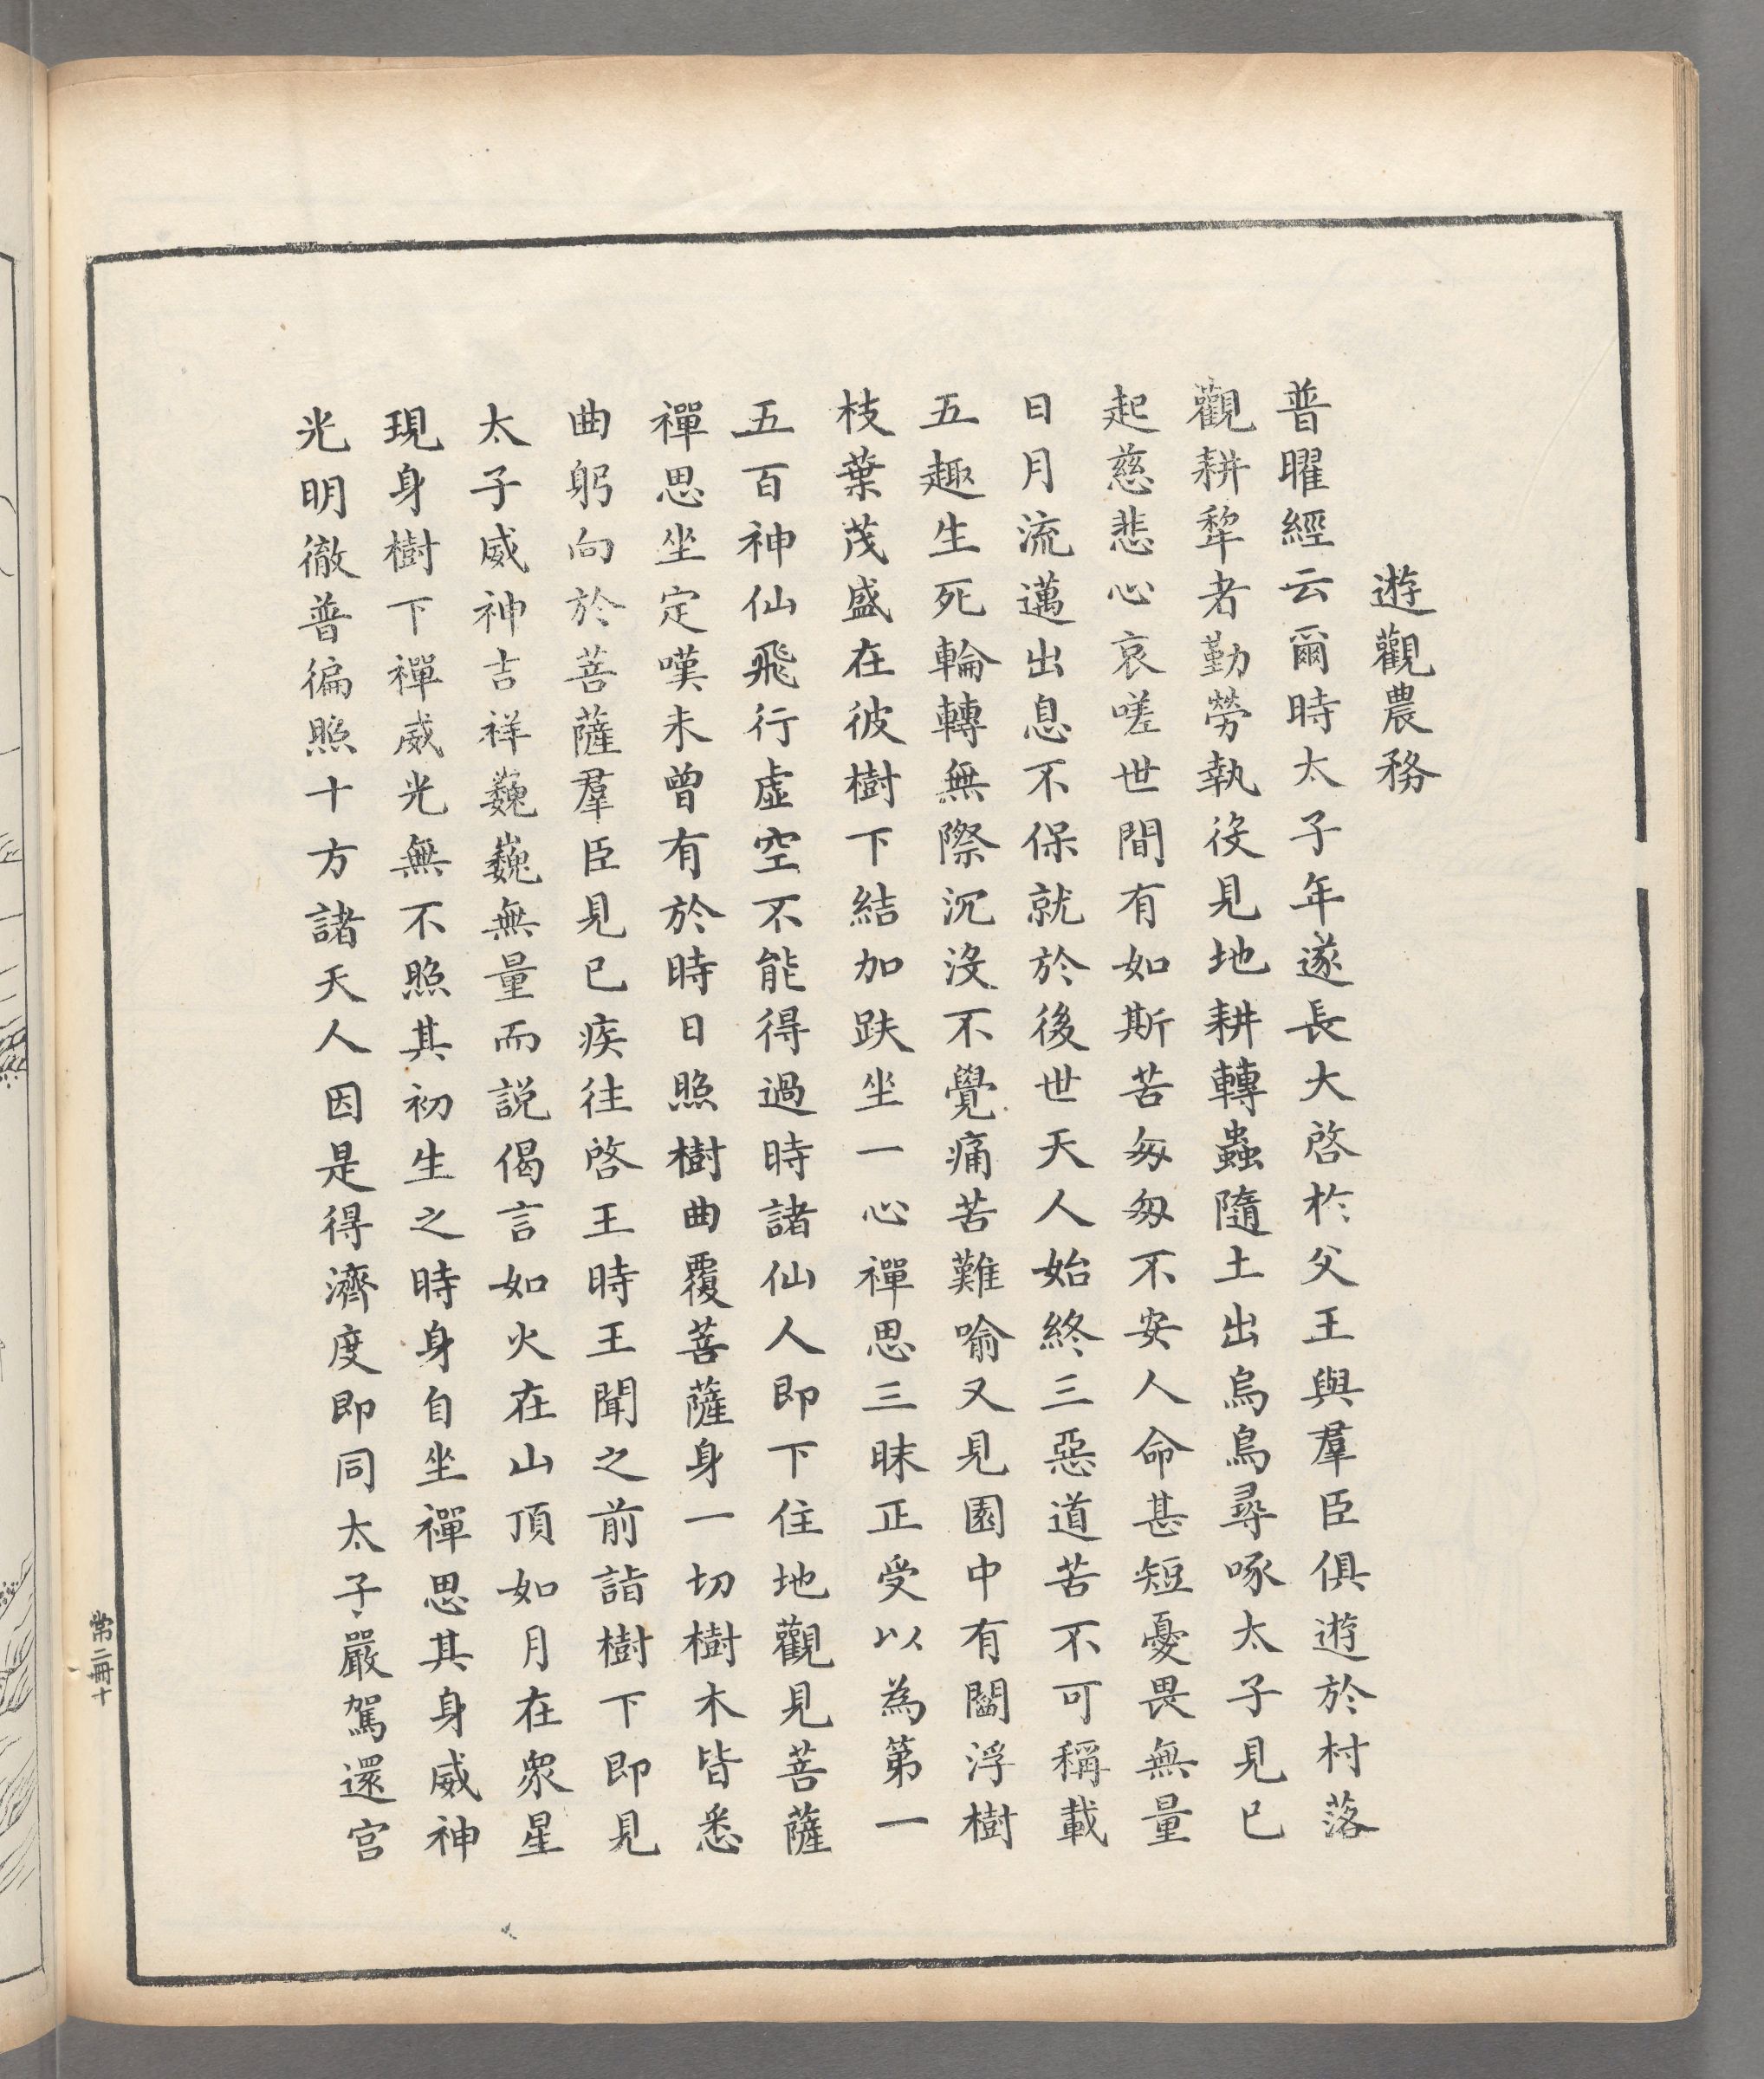 遊觀農務
普曜經云爾時太子年遂長大啓於父王與羣臣俱遊於村落
觀耕犂者勤勞執役見地耕轉蟲隨土出烏鳥尋啄太子見已
起慈悲心哀嗟世間有如斯苦匆匆不安人命甚短憂畏無量
日月流邁出息不保就於後世天人始終三惡道苦不可稱載
五趣生死輪轉無際沉沒不覺痛苦難喻又見園中有閻浮樹
枝葉茂盛在彼樹下結加趺坐一心禪思三昧正受以為第一
五百神仙飛行虛空不能得過時諸仙人即下住地觀見菩薩
禪思坐定嘆未曾有於時日照樹曲覆菩薩身一切樹木皆悉
曲躬向於菩薩羣臣見已疾往啓王時王聞之前詣樹下即見
太子威神吉祥巍巍無量而說偈言如火在山頂如月在眾星
現身樹下禪威光無不照其初生之時身自坐禪思其身威神
光明徹普徧照十方諸天人因是得濟度即同太子嚴駕還宮
常二冊十